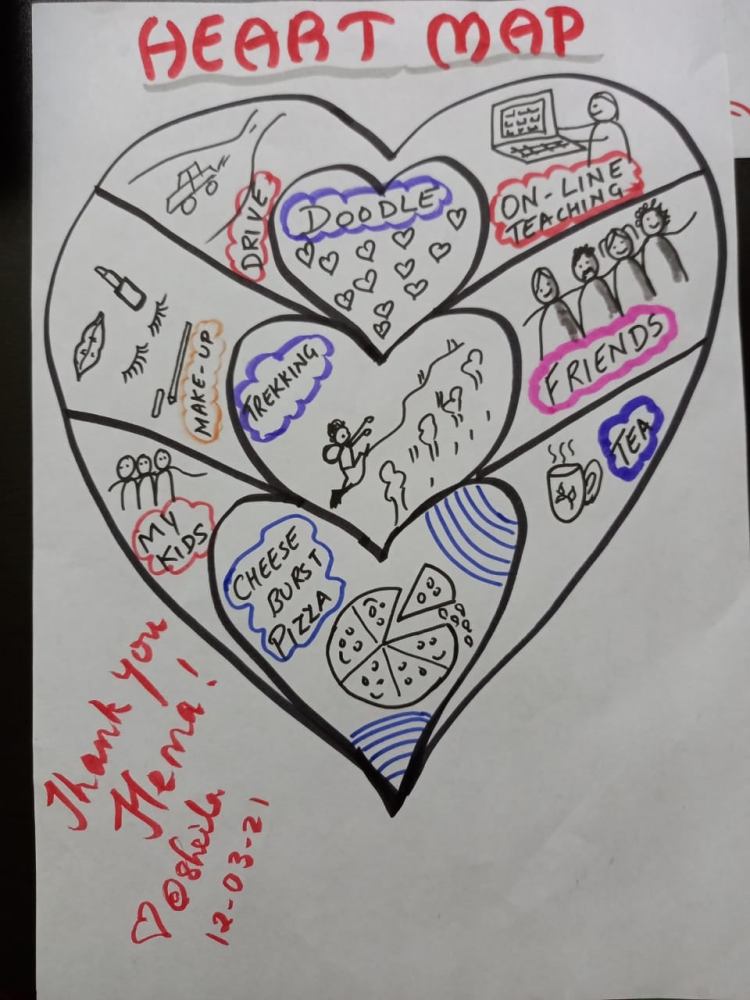 HEART MAP
DRIVE
DOODLE
ON-LINE
TEACHING
MAKE-UP
TREKKING
FRIENDS
TEA
MY
KIDS
CHEESE
BURST
PIZZA
Thank you
Hema!
@sheila
12-03-21